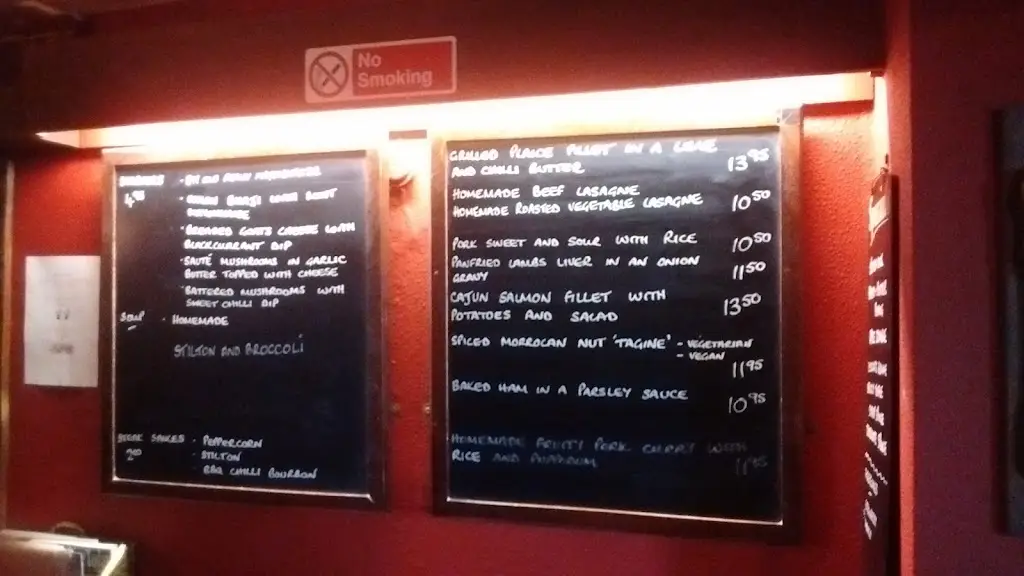 No
Smoking
4.95
BREADED GOATS CHEESE WITH
BLACKCURRANT DIP
SAUTE MUSHROOMS IN GARLIC
BUTTER TOPPED WITH CHEESE
BATTERED MUSHROOMS WITH
SWEET CHILLI DIP
SOUP - HOMEMADE
STILTON AND BROCCOLI
STEAK SAUCES - PEPPERCORN
2.00 - STILTON
- BBQ CHILLI BOURBON
GRILLED PLAICE FILLET IN A LIME
AND CHILLI BUTTER 13.95
HOMEMADE BEEF LASAGNE
HOMEMADE ROASTED VEGETABLE LASAGNE 10.50
PORK SWEET AND SOUR WITH RICE 10.50
PANFRIED LAMBS LIVER IN AN ONION
GRAVY 11.50
CAJUN SALMON FILLET WITH
POTATOES AND SALAD 13.50
SPICED MORROCAN NUT 'TAGINE' - VEGETARIAN
- VEGAN
11.95
BAKED HAM IN A PARSLEY SAUCE 10.95
HOMEMADE FRUITY PORK CURRY WITH
RICE AND 11.95